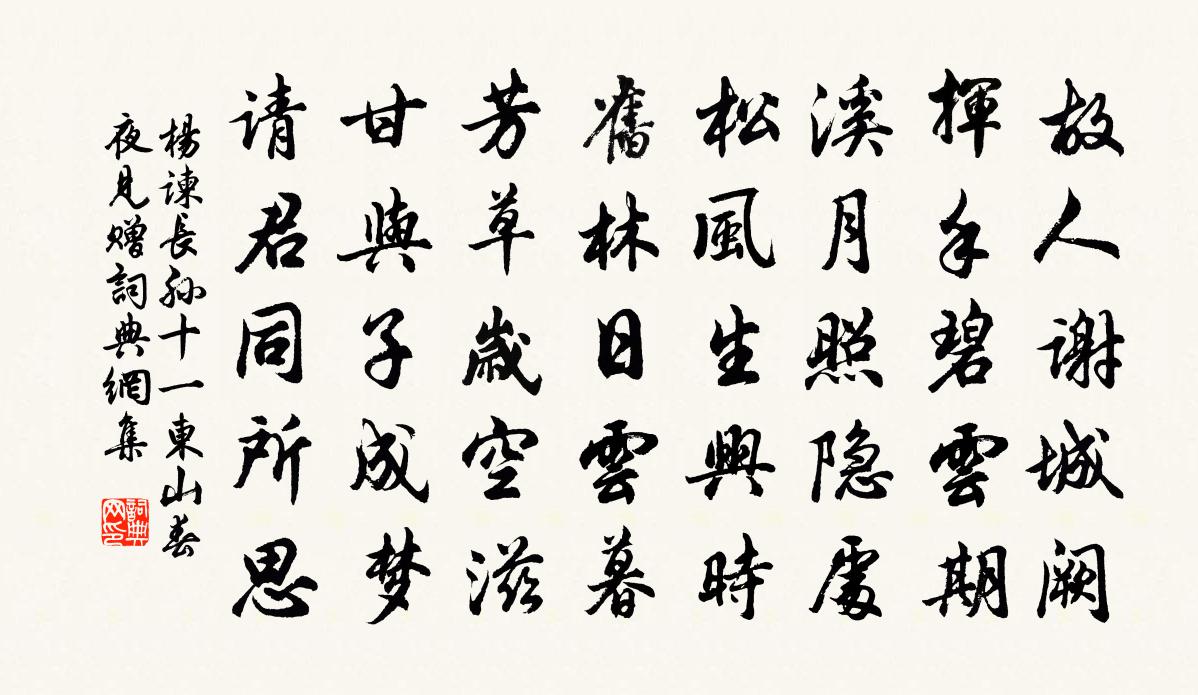 故人谢城阙
揮手碧雲期
溪月照隐處
松風生興時
舊林日雲暮
芳草歳空滋
甘與子成梦
请君同所思
楊谏長孙十一東山春
夜見赠詞典網集
詞典
网印